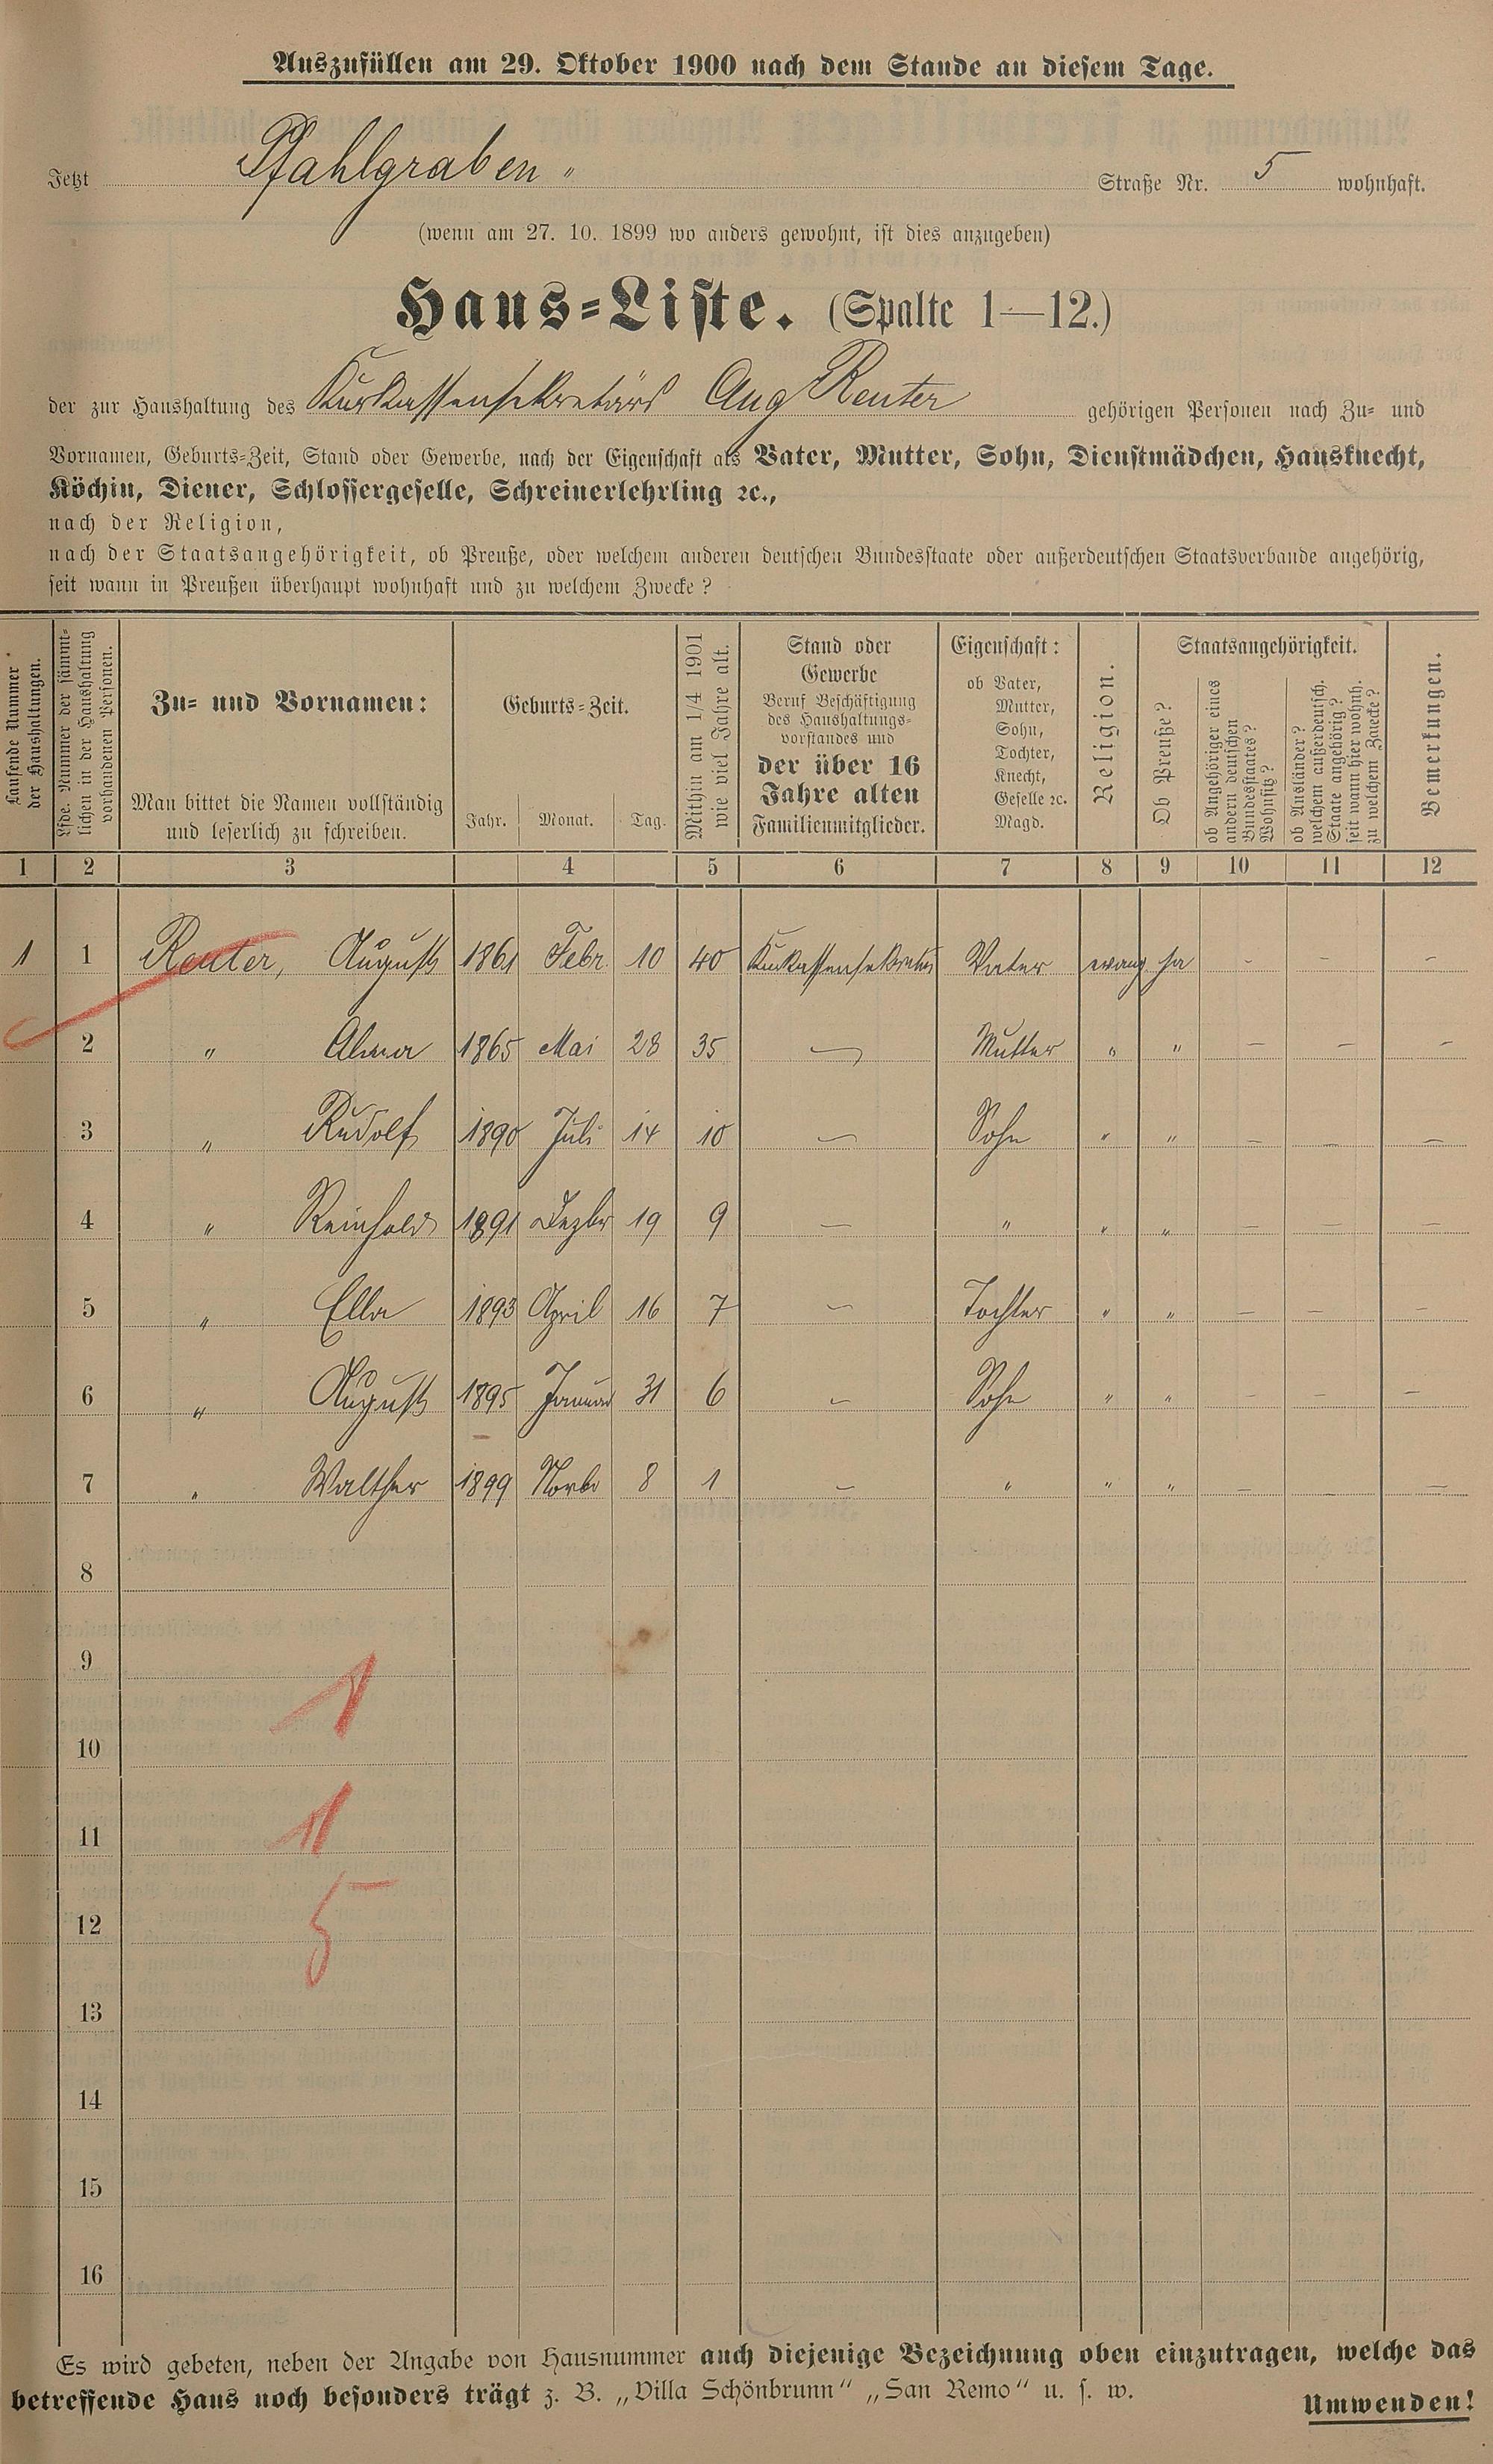 Auszufüllen am 29. Oktober 1900 nach dem Stande an diesem Tage.
Jetzt Pfahlgraben " Straße Nr. 5 wohnhaft.
(wenn am 27. 10. 1899 wo anders gewohnt, ist dies anzugeben)
Haus-Liste. (Spalte 1—12.)
der zur Haushaltung des Kurkassensekretärs Aug Reuter gehörigen Personen nach Zu- und
Vornamen, Geburts-Zeit, Stand oder Gewerbe, nach der Eigenschaft als Vater, Mutter, Sohn, Dienstmädchen, Hausknecht,
Köchin, Diener, Schlossergeselle, Schreinerlehrling ꝛc.,
nach der Religion,
nach der Staatsangehörigkeit, ob Preuße, oder welchem anderen deutschen Bundesstaate oder außerdeutschen Staatsverbande angehörig,
seit wann in Preußen überhaupt wohnhaft und zu welchem Zwecke?
Laufende Nummer
der Haushaltungen.
Lfde. Nummer der sämmt-
lichen in der Haushaltung
vorhandenen Personen.
Zu- und Vornamen:
Man bittet die Namen vollständig
und leserlich zu schreiben.
Geburts-Zeit.
Jahr. Monat. Tag.
Mithin am 1/4 1901
wie viel Jahre alt.
Stand oder
Gewerbe
Beruf Beschäftigung
des Haushaltungs-
vorstandes und
der über 16
Jahre alten
Familienmitglieder.
Eigenschaft:
ob Vater,
Mutter,
Sohn,
Tochter,
Knecht,
Geselle ꝛc.
Magd.
Religion.
Staatsangehörigkeit.
Ob Preuße?
ob Angehöriger eines
andern deutschen
Bundesstaates?
Wohnsitz?
ob Ausländer?
welchem außerdeutsch.
Staate angehörig?
seit wann hier wohnh.
zu welchem Zwecke?
Bemerkungen.
1 2 3 4 5 6 7 8 9 10 11 12
1 1 Reuter, August 1861 Febr. 10 40 Kurkassensekretär Vater evang ja - - -
2 " Alma 1865 Mai 28 35 — Mutter " " — — —
3 " Rudolf 1890 Juli 14 10 — Sohn " " — — —
4 " Reinhold 1891 Dezbr 19 9 — " " " — — —
5 " Ella 1893 April 16 7 — Tochter " " — — —
6 " August 1895 Januar 31 6 — Sohn " " — — —
7 " Walther 1899 Novbr 8 1 — " " " — — —
8
9
1
10
11
1
12
5
13
14
15
16
Es wird gebeten, neben der Angabe von Hausnummer auch diejenige Bezeichnung oben einzutragen, welche das
betreffende Haus noch besonders trägt z. B. „Villa Schönbrunn“ „San Remo“ u. s. w.
Umwenden!